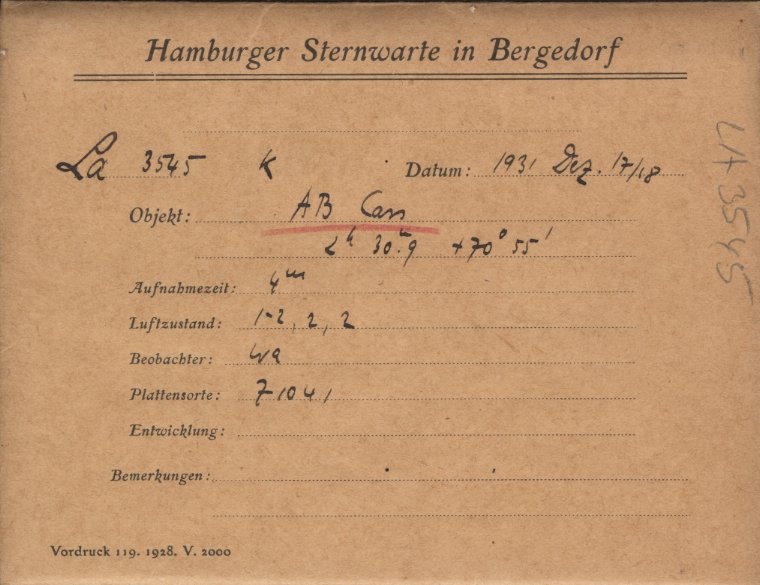 Hamburger Sternwarte in Bergedorf
La 3545 K Datum: 1931 Dez. 17/18
Objekt: AB Cass
2h 30m.9 +70° 55'
Aufnahmezeit: 4m
Luftzustand: 1-2, 2, 2
Beobachter: Wa
Plattensorte: Z 1041
Entwicklung:
Bemerkungen:
Vordruck 119. 1928. V. 2000
LA 3545